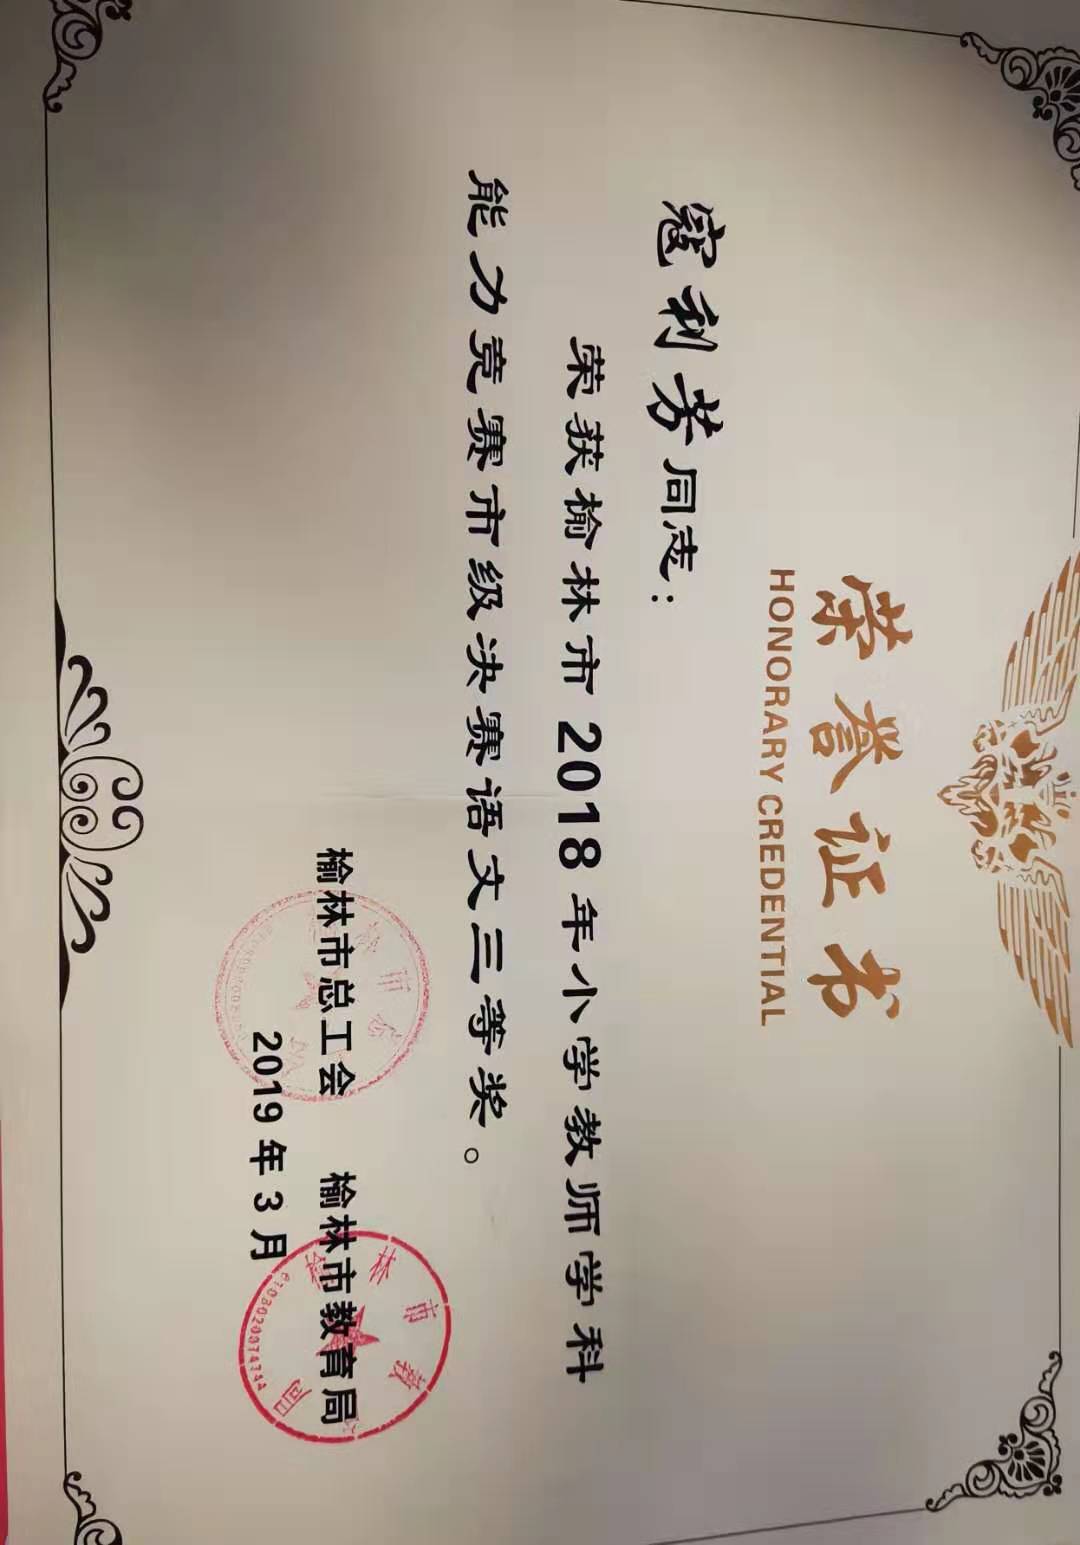 荣誉证书
HONORARY CREDENTIAL
寇利芳同志：
荣获榆林市2018年小学教师学科
能力竞赛市级决赛语文三等奖。
榆林市总工会 榆林市教育局
2019年3月
榆林市教育局